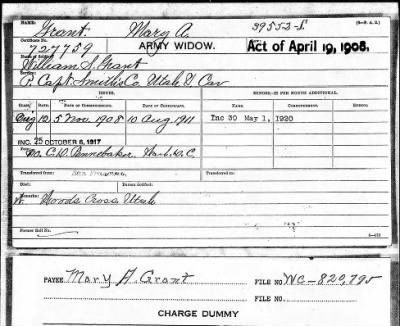 NAME: Grant Mary A. 39552-S
Certificate No. 727759 ARMY WIDOW. Act of April 19, 1908.
William S. Grant
P. Capt. Smith's Co. Utah V. Cav
ISSUE. MINORS—$2 PER MONTH ADDITIONAL.
CLASS. RATE. DATE OF COMMENCEMENT. DATE OF CERTIFICATE. NAME. COMMENCEMENT.
Aug 12. 5 Nov. 1908 10 Aug 1911 Inc 30 May 1, 1920
INC. 25 OCTOBER 6, 1917
C. D. Pennebaker, D. C.
Transferred from: San
Died: Bureau notified:
Remarks:
W. Woods Cross Utah
Former Roll No.
PAYEE Mary A. Grant FILE NO. WC-820,795
FILE NO.
CHARGE DUMMY